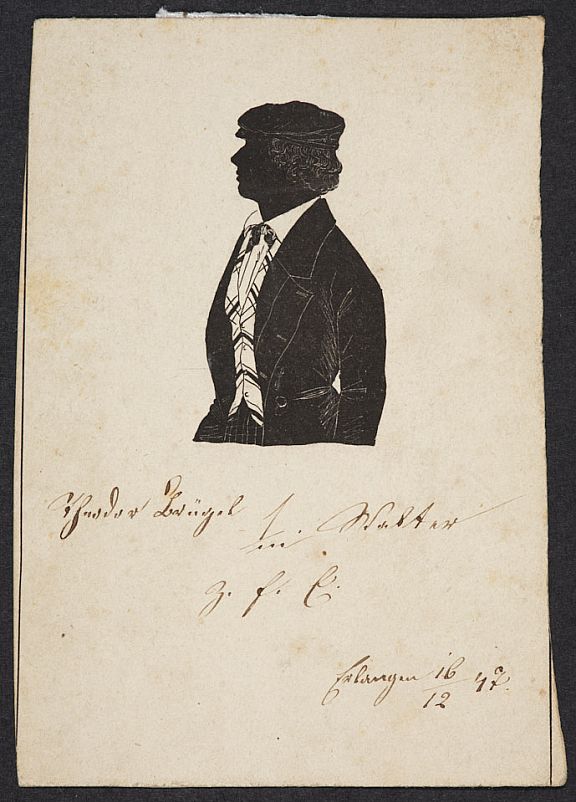 Theodor Brügel s. m. Walter
z. f. E.
Erlangen 16/12 47.